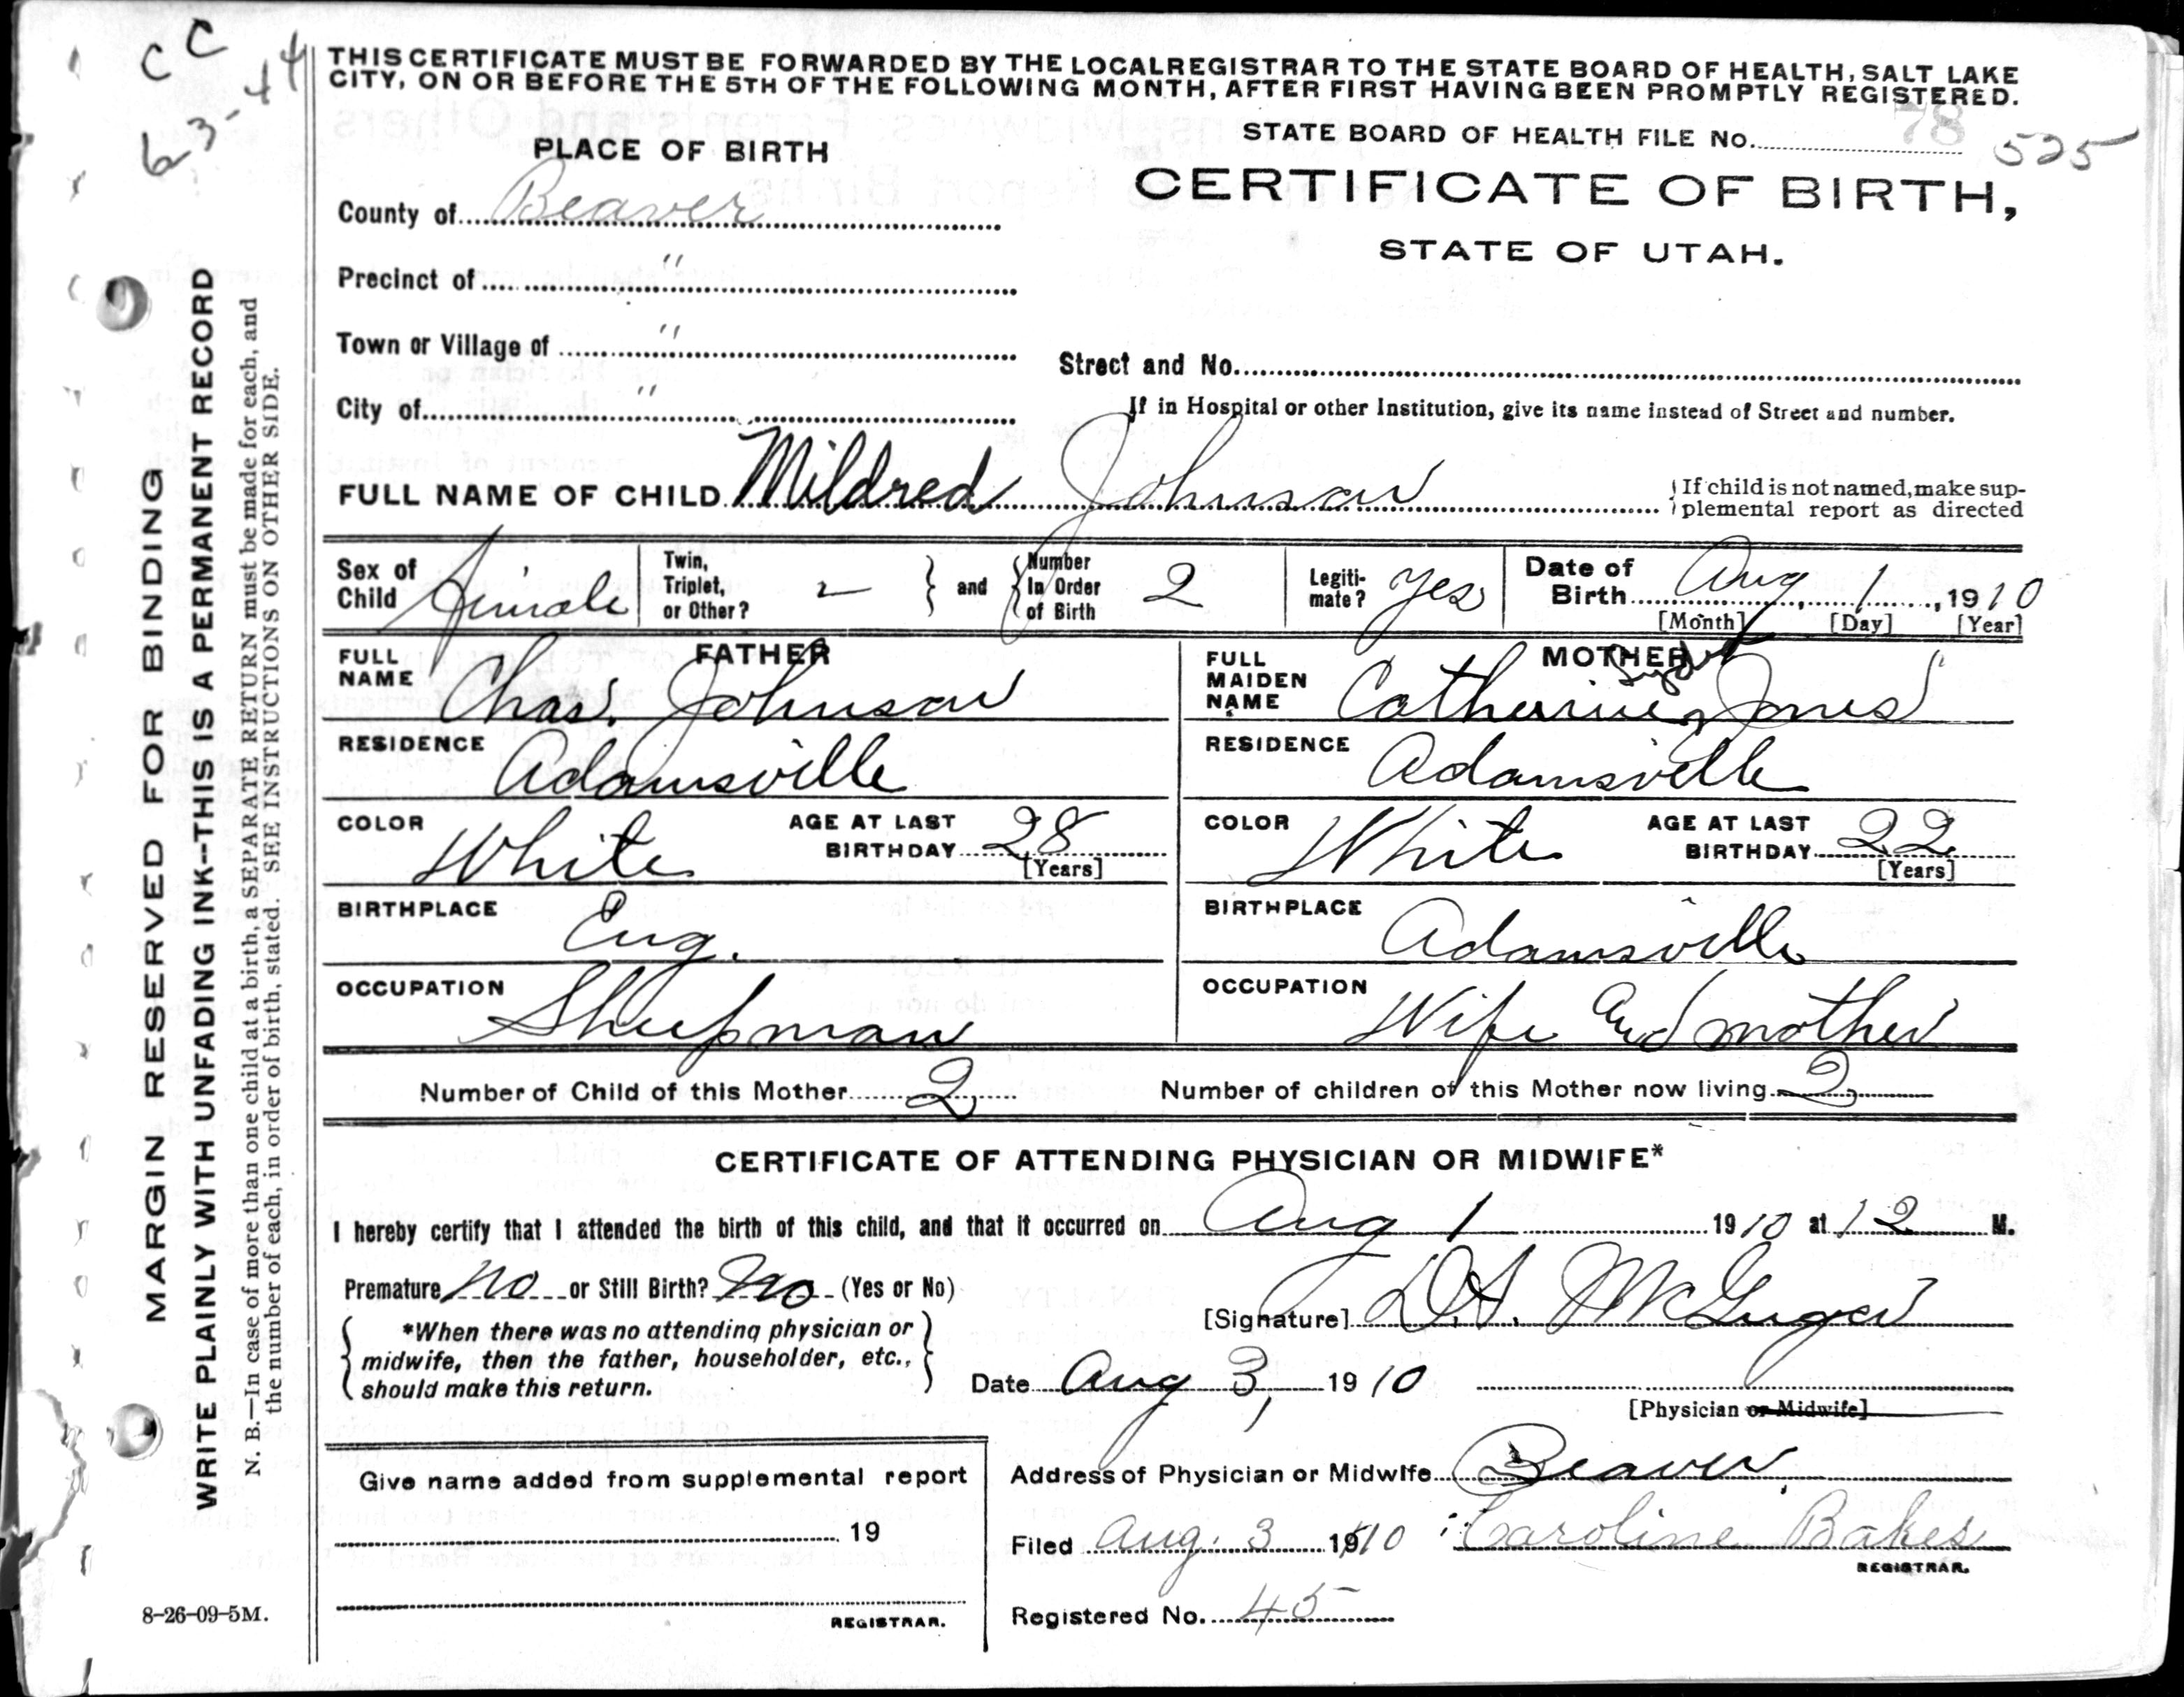 CC
63-14
THIS CERTIFICATE MUST BE FORWARDED BY THE LOCAL REGISTRAR TO THE STATE BOARD OF HEALTH, SALT LAKE
CITY, ON OR BEFORE THE 5TH OF THE FOLLOWING MONTH, AFTER FIRST HAVING BEEN PROMPTLY REGISTERED.
STATE BOARD OF HEALTH FILE No. 78 525
PLACE OF BIRTH
CERTIFICATE OF BIRTH,
STATE OF UTAH.
County of Beaver
Precinct of "
Town or Village of "
Street and No.
City of "
If in Hospital or other Institution, give its name instead of Street and number.
FULL NAME OF CHILD Mildred Johnson
{If child is not named, make sup-
plemental report as directed
Sex of Child Female
Twin, Triplet, or Other? 2 } and { Number In Order of Birth 2
Legiti-mate? Yes
Date of Birth Aug 1, 1910
[Month] [Day] [Year]
FATHER
FULL NAME Chas. Johnson
RESIDENCE Adamsville
COLOR White AGE AT LAST BIRTHDAY 28
[Years]
BIRTHPLACE Eng.
OCCUPATION Sheepman
MOTHER
FULL MAIDEN NAME Catherine Jones
RESIDENCE Adamsville
COLOR White AGE AT LAST BIRTHDAY 22
[Years]
BIRTHPLACE Adamsville
OCCUPATION Wife and mother
Number of Child of this Mother 2 Number of children of this Mother now living 2
CERTIFICATE OF ATTENDING PHYSICIAN OR MIDWIFE*
I hereby certify that I attended the birth of this child, and that it occurred on Aug 1 1910 at 12 M.
Premature No or Still Birth? No (Yes or No)
{ *When there was no attending physician or
midwife, then the father, householder, etc.,
should make this return. }
[Signature] D.A. McGregor
Date Aug 3, 1910
[Physician or Midwife]
Address of Physician or Midwife Beaver
Filed Aug. 3 1910 Caroline Bakes
REGISTRAR.
Registered No. 45
Give name added from supplemental report
19
REGISTRAR.
MARGIN RESERVED FOR BINDING
WRITE PLAINLY WITH UNFADING INK--THIS IS A PERMANENT RECORD
N. B.—In case of more than one child at a birth, a SEPARATE RETURN must be made for each, and
the number of each, in order of birth, stated. SEE INSTRUCTIONS ON OTHER SIDE.
8-26-09-5M.